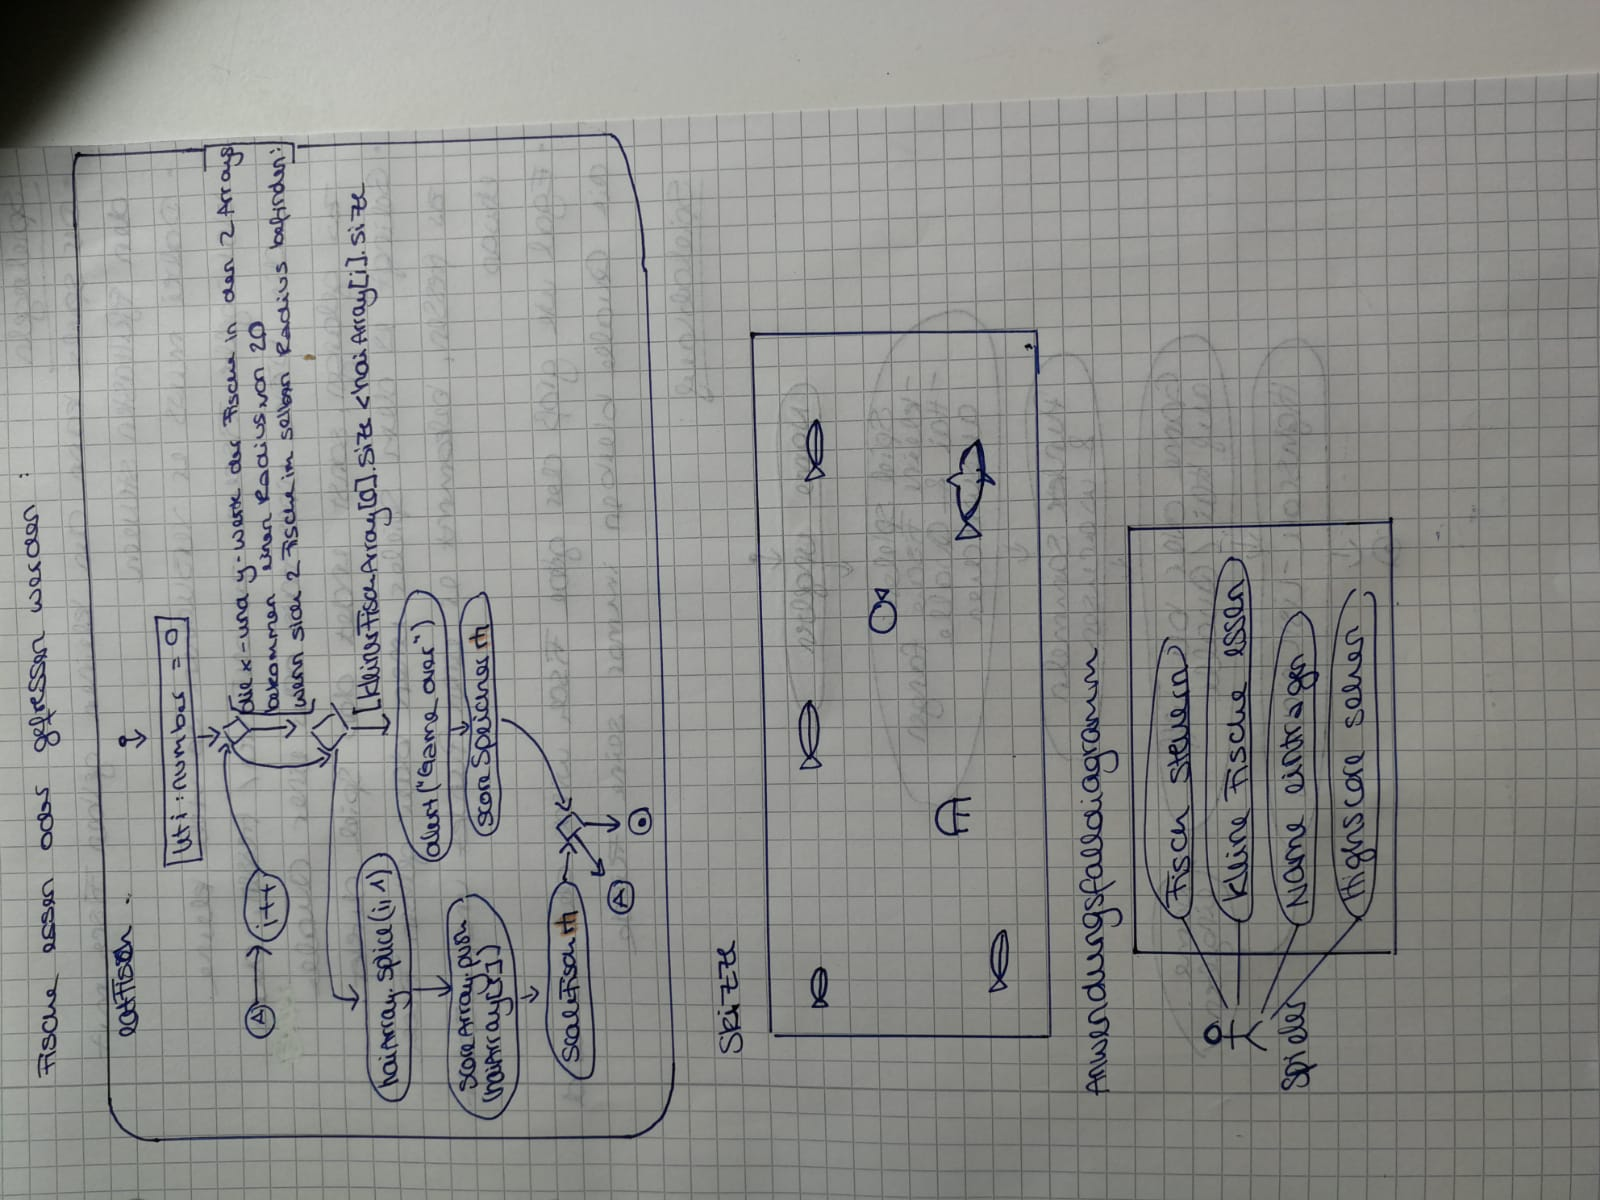 Fische essen oder gefressen werden :
eatFish
let i : number = 0
[die x- und y-werte der Fische in den 2 Arrays
bekommen einen Radius von 20
wenn sich 2 Fische im selben Radius befinden:]
A
i++
[kleinerFischArray[0].size < haiArray[i].size
haiArray.splice(i,1)
alert("Game over")
scoreArray.push
(haiArray[i])
scoreSpeichern
scaleFisch
A
Skizze
Anwendungsfalldiagramm
Fisch steuern
kleine Fische essen
Name eintragen
Highscore sehen
Spieler